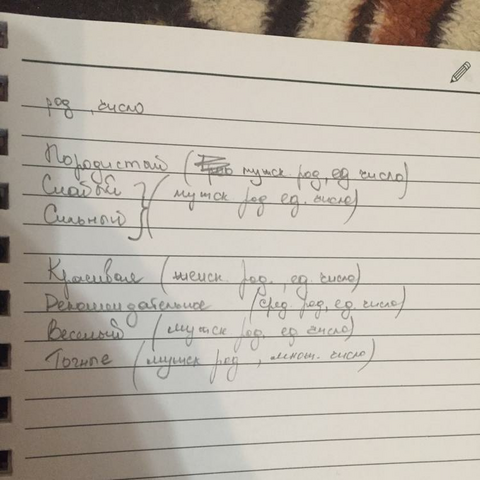 род, число
Породистый (мужск. род, ед число)
Слабый
Сильный } (мужск род ед. число)
Красивая (женск. род., ед число)
Рекомендательное (сред. род, ед. число)
Веселый (мужск род, ед число)
Точные (мужск род, множ. число)